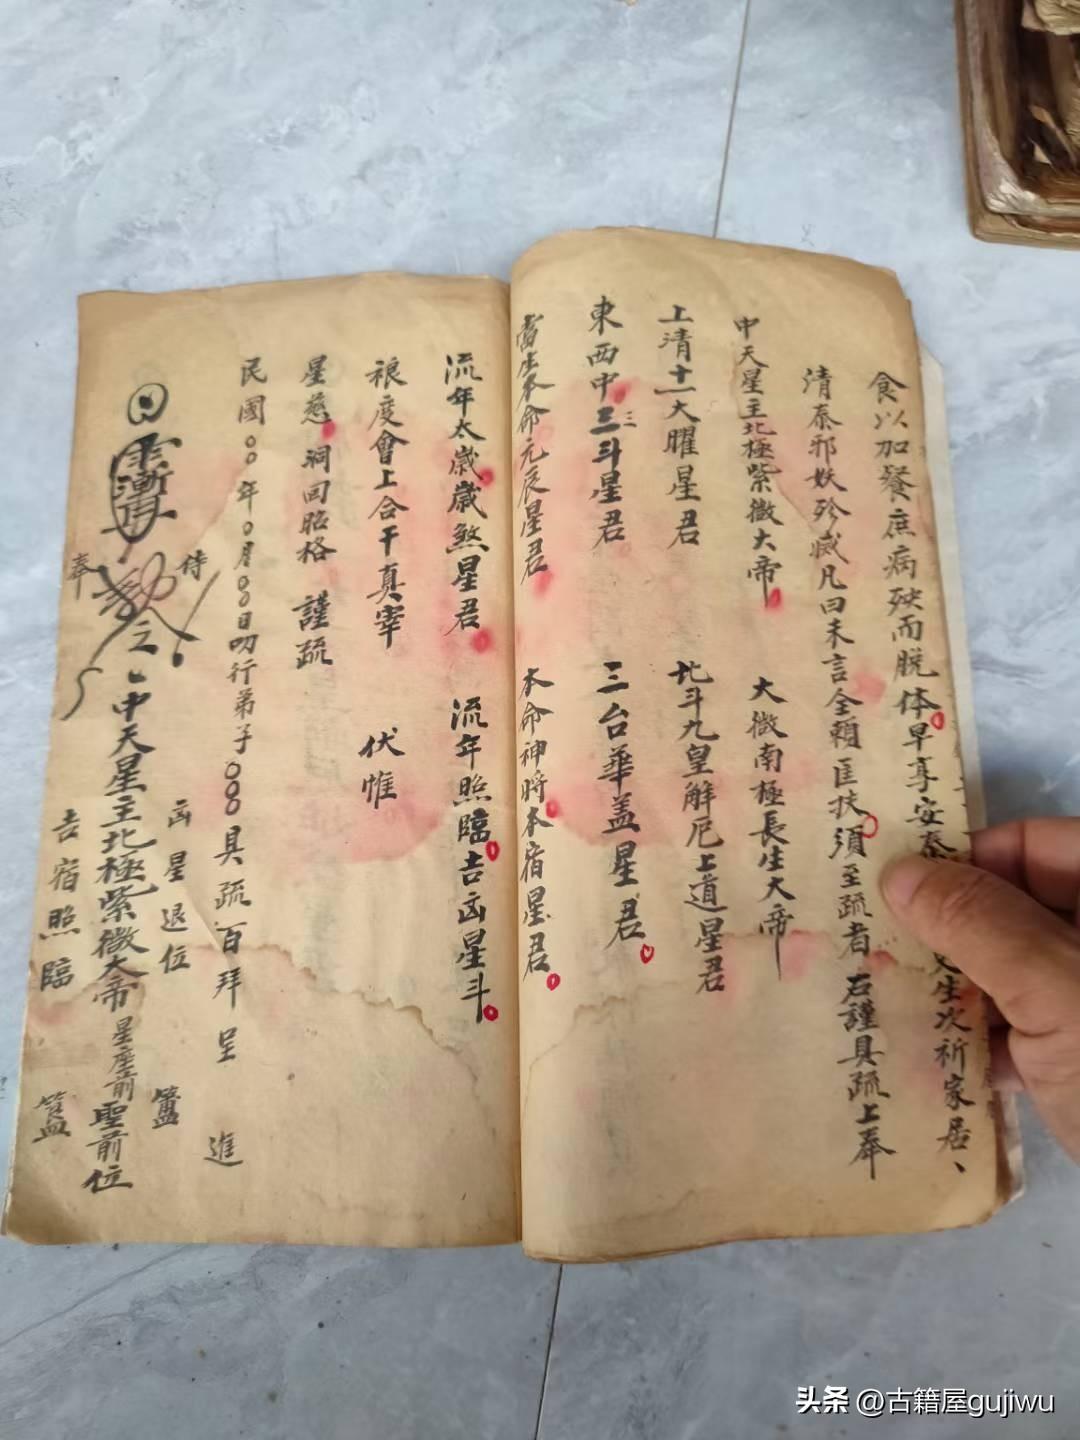 食以加餐庶病殃而脱体早享安泰生次祈家居、
清泰邪妖殄滅凡曰未言全賴匡扶須至疏者 右謹具疏上奉
中天星主北極紫微大帝 大微南極長生大帝
上清十一大曜星君 北斗九皇解厄上道星君
東西中三斗星君 三台華盖星君
三
當生本命元辰星君 本命神將本宿星君
流年太歲歲煞星君 流年照臨吉凶星斗
祿度會上合干真宰 伏惟
星慈洞回昭格 謹疏
民國〇〇年〇月〇〇日叨行弟子〇〇〇具疏百拜呈 進
凶星退位
侍
之
中天星主北極紫微大帝星座前聖前位
奉
吉宿照臨
头条 @古籍屋gujiwu